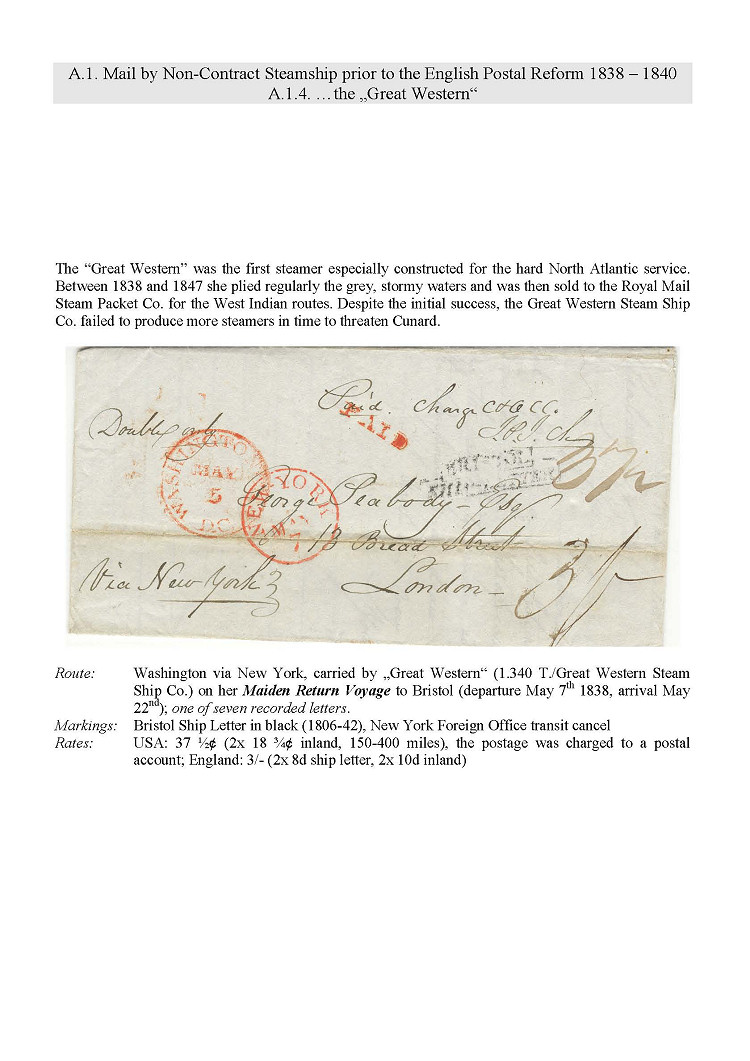 A.1. Mail by Non-Contract Steamship prior to the English Postal Reform 1838 – 1840
A.1.4. …the „Great Western“
The “Great Western” was the first steamer especially constructed for the hard North Atlantic service.
Between 1838 and 1847 she plied regularly the grey, stormy waters and was then sold to the Royal Mail
Steam Packet Co. for the West Indian routes. Despite the initial success, the Great Western Steam Ship
Co. failed to produce more steamers in time to threaten Cunard.
Paid. Charge
PAID
Double only
WASHINGTON
MAY
5
D.C.
37½
NEW YORK
MAY
7
George Peabody – Esq
13 Bread Street
London –
3/
Via New York
Route: Washington via New York, carried by „Great Western“ (1.340 T./Great Western Steam
Ship Co.) on her Maiden Return Voyage to Bristol (departure May 7th 1838, arrival May
22nd); one of seven recorded letters.
Markings: Bristol Ship Letter in black (1806-42), New York Foreign Office transit cancel
Rates: USA: 37 ½¢ (2x 18 ¾¢ inland, 150-400 miles), the postage was charged to a postal
account; England: 3/- (2x 8d ship letter, 2x 10d inland)